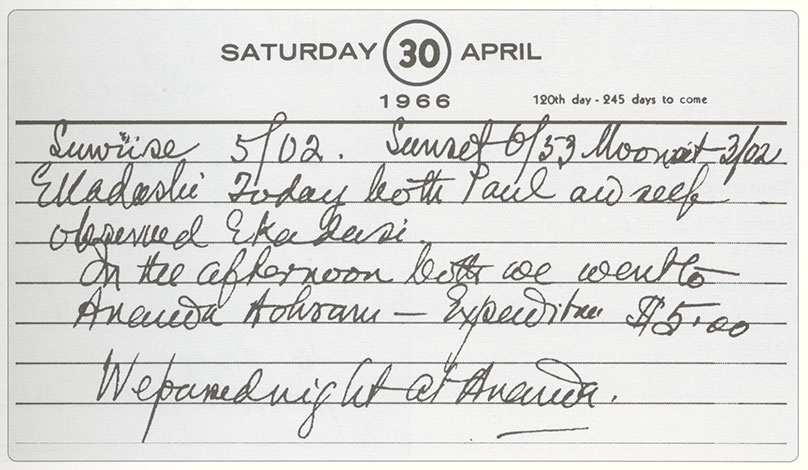 SATURDAY 30 APRIL
1966 120th day - 245 days to come
Sunrise 5/02. Sunset 6/53 Moonset 3/02
Ekadashi Today both Paul and self
observed Ekadasi.
In the afternoon both we went to
Ananda Ashram — Expenditure $5.00
We passed night at Ananda.